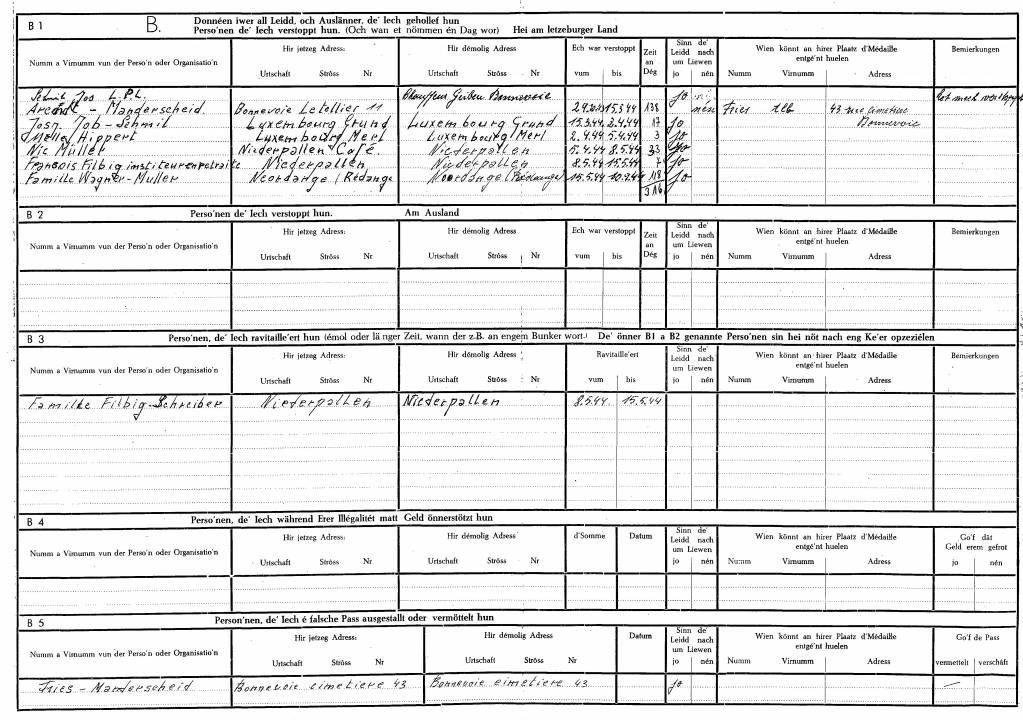 B 1 B. Donnéen iwer all Leidd, och Auslänner, de' Iech gehollef hun
Perso'nen de' Iech verstoppt hun. (Och wan et nömmen én Dag wor) Hei am letzeburger Land
Numm a Virnumm vun der Perso'n oder Organisatio'n Hir jetzeg Adress: Hir démolig Adress Ech war verstoppt Zeit an Dég Sinn de' Leidd nach um Liewen Wien könnt an hirer Plaatz d'Médaille entgé'nt huelen Bemierkungen
Urtschaft Ströss Nr Urtschaft Ströss Nr vum bis jo nén Numm Virnumm Adress
Schmit Jos L.P.L. Chauffeur Geiben Bonnevoie jo
Arendt - Manderscheid Bonnevoie Letellier 11 15.3.44 138 nén Fries 43 rue cimetière
Bonnevoie
Josy. Job - Schmit Luxembourg Grund Luxembourg Grund 15.3.44 2.4.44 17 jo
Hippert Luxembourg Merl Luxembourg Merl 2.4.44 5.4.44 3 jo
Nic Müller Niederpallen Café Niederpallen 5.4.44 8.5.44 33 jo
Francois Filbig instituteur retraite Niederpallen Niederpallen 8.5.44 15.5.44 7 jo
Famille Wagner - Muller Noerdange (Rédange Noerdange (Rédange) 15.5.44 10.9.44 118 jo
316
B 2 Perso'nen de' Iech verstoppt hun. Am Ausland
Numm a Virnumm vun der Perso'n oder Organisatio'n Hir jetzeg Adress: Hir démolig Adress Ech war verstoppt Zeit an Dég Sinn de' Leidd nach um Liewen Wien könnt an hirer Plaatz d'Médaille entgé'nt huelen Bemierkungen
Urtschaft Ströss Nr Urtschaft Ströss Nr vum bis jo nén Numm Virnumm Adress
B 3 Perso'nen, de' Iech ravitaille'ert hun (émol oder länger Zeit, wann der z.B. an engem Bunker wort.) De' önner B1 a B2 genannte Perso'nen sin hei nöt nach eng Ke'er opzeziélen
Numm a Virnumm vun der Perso'n oder Organisatio'n Hir jetzeg Adress: Hir démolig Adress Ravitaille'ert Sinn de' Leidd nach um Liewen Wien könnt an hirer Plaatz d'Médaille entgé'nt huelen Bemierkungen
Urtschaft Ströss Nr Urtschaft Ströss Nr vum bis jo nén Numm Virnumm Adress
Familie Filbig-Schreiber Niederpallen Niederpallen 8.5.44 15.5.44
B 4 Perso'nen, de' Iech während Erer Illégalitét matt Geld önnerstötzt hun
Numm a Virnumm vun der Perso'n oder Organisatio'n Hir jetzeg Adress: Hir démolig Adress d'Somme Datum Sinn de' Leidd nach um Liewen Wien könnt an hirer Plaatz d'Médaille entgé'nt huelen Go'f dât Geld erem gefrot
Urtschaft Ströss Nr Urtschaft Ströss Nr jo nén Numm Virnumm Adress jo nén
B 5 Person'nen, de' Iech é falsche Pass ausgestallt oder vermöttelt hun
Numm a Virnumm vun der Perso'n oder Organisatio'n Hir jetzeg Adress: Hir démolig Adress Datum Sinn de' Leidd nach um Liewen Wien könnt an hirer Plaatz d'Médaille entgé'nt huelen Go'f de Pass
Urtschaft Ströss Nr Urtschaft Ströss Nr jo nén Numm Virnumm Adress vermettelt verschâft
Fries - Manderscheid Bonnevoie cimetiere 43 Bonnevoie cimetiere 43 jo —